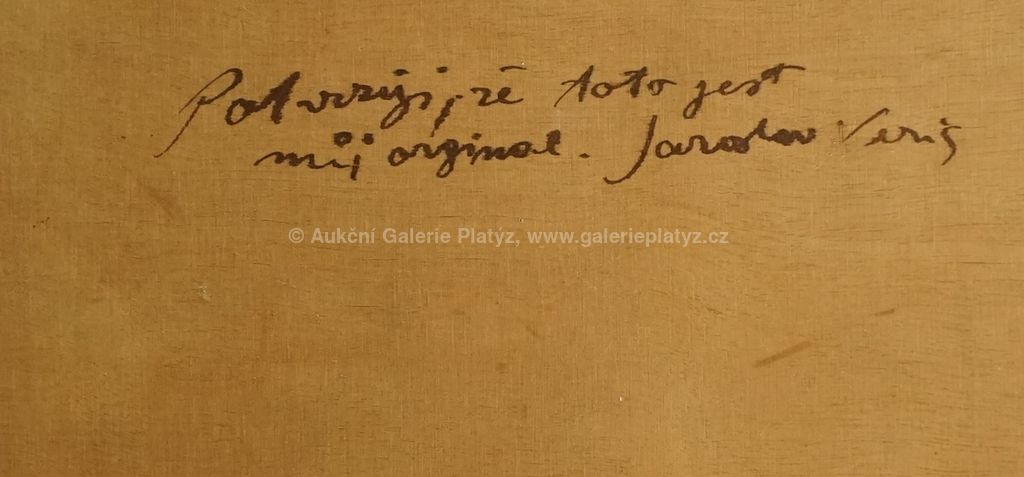 Potvrzuji, že toto jest
můj orginal. Jaroslav Veris
© Aukční Galerie Platýz, www.galerieplatyz.cz